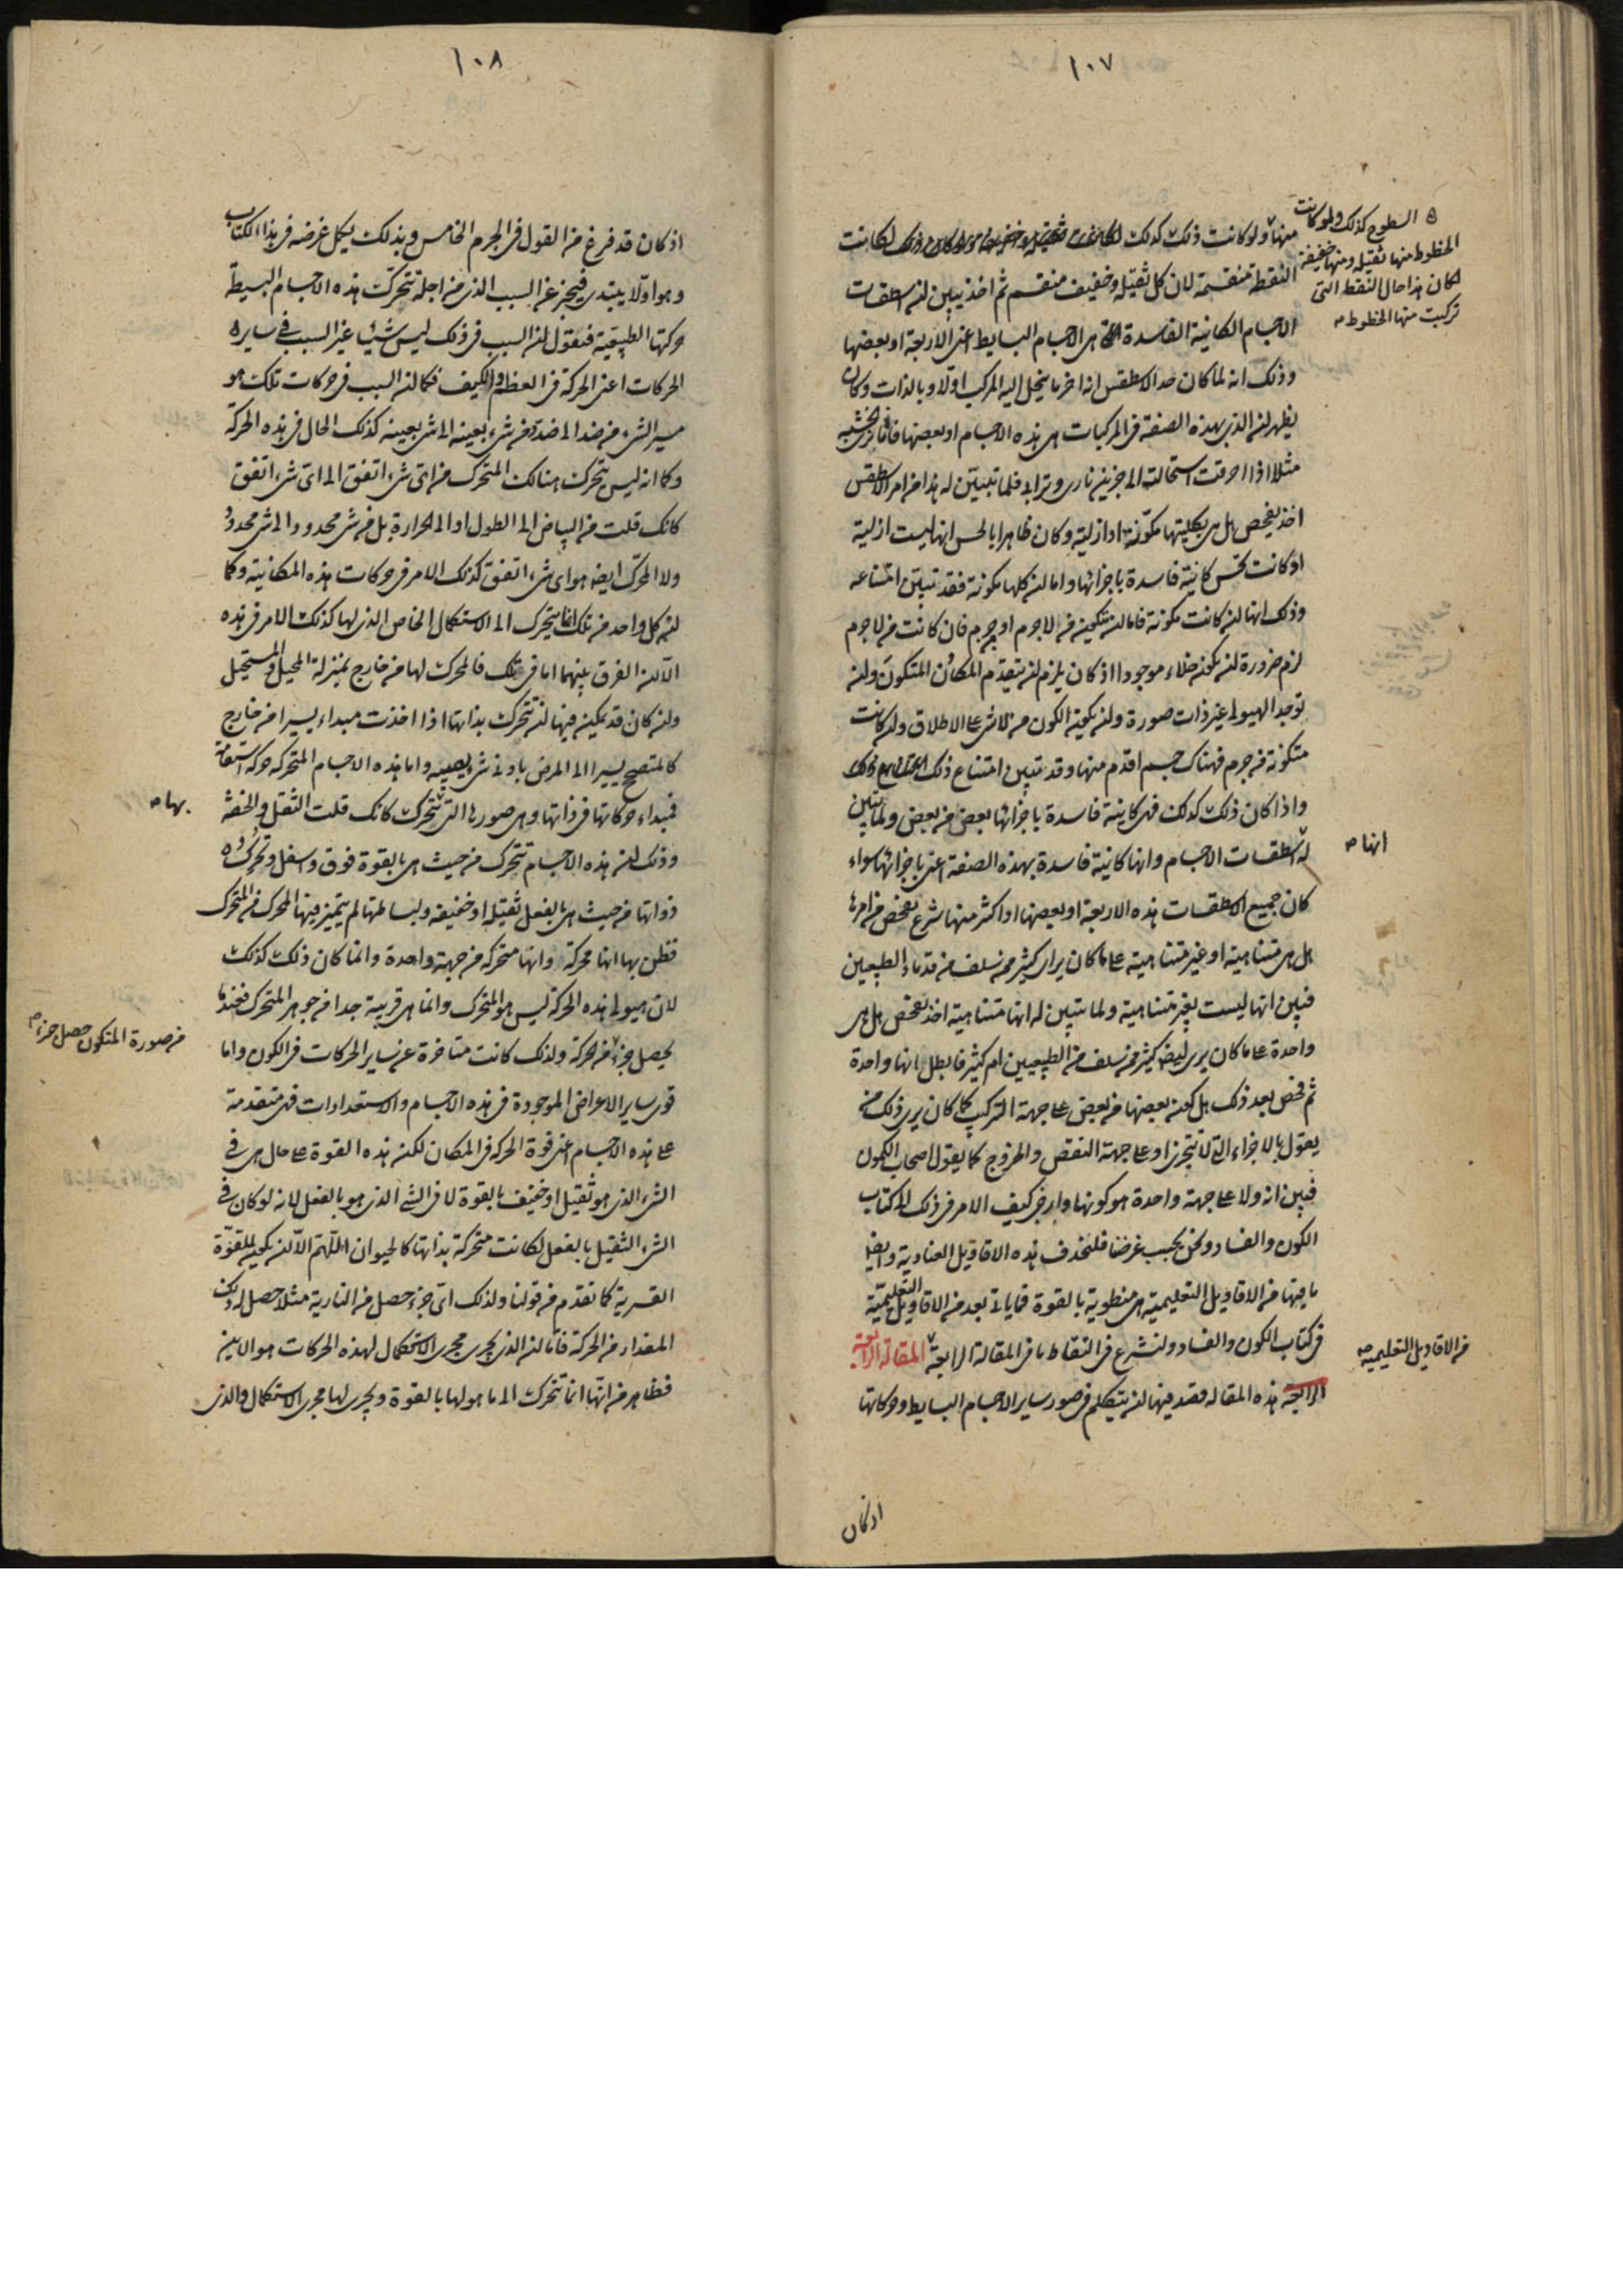 ١٠٧
السطوح كذلك ولو كانت
الخطوط منها ثقيلة ومنها خفيفة
لكان هذا حال النقط التى
تركبت منها الخطوط صه
منها ولو كانت ذلك كذلك لكانت
النقطة منقسمة لان كل ثقيلة وخفيف منقسم ثم اخذ يبين ان اسطقسات
الاجسام الكاينة الفاسدة هى الاجسام البسايط اعنى الاربعة او بعضها
وذلك انه لما كان حد الاسطقس انه اخر ما ينحل اليه المركب اولا وبالذات وكان
يظهر ان الذى بهذه الصفة فى المركبات هى هذه الاجسام او بعضها فانا نرى الخشبه
مثلا اذا احرقت استحالت الى جزئين نارى وترابى فلما تبين له هذا من امر الاسطقس
اخذ يفحص هل هى بكليتها مكونة او ازلية وكان ظاهرا بالحس انها ليست ازلية
اذ كانت تحس كاينة فاسدة باجزائها واما ان كلها مكونة فقد تبين امتناعه
وذلك انها ان كانت مكونة فاما ان تتكون من لا جرم او جرم فان كانت من لا جرم
لزم ضرورة ان يكون خلاء موجودا اذ كان يلزم ان يتقدم المكان المتكون وان
توجد الهيولى غير ذات صورة وان يكون الكون من لا شى على الاطلاق وان كانت
متكونة من جرم فهناك جسم اقدم منها وقد تبين امتناع ذلك
واذا كان ذلك كذلك فهى كاينة فاسدة باجزائها بعض من بعض ولما تبين
له اسطقسات الاجسام وانها كاينة فاسدة بهذه الصفة اعنى باجزائها سواء
انها صه
كان جميع الاسطقسات هذه الاربعة او بعضها او اكثر منها شرع يفحص من امرها
هل هى متناهية او غير متناهية على ما كان يراه كثير ممن سلف من قدماء الطبيعيين
فبين انها ليست بغير متناهية ولما تبين له انها متناهية اخذ يفحص هل هى
واحدة على ما كان يرى ايضا كثير ممن سلف من الطبيعيين ام كثير فابطل انها واحدة
ثم فحص بعد ذلك هل كون بعضها من بعض على جهة التركيب كما كان يرى ذلك من
يقول بالاجزاء التى لا تتجزى او على جهة النقض والخروج كما يقول اصحاب الكمون
فبين انه ولا على جهة واحدة هو كونها وارجى كيف الامر فى ذلك الى كتاب
الكون والفساد ونحن بحسب غرضنا فلنحذف هذه الاقاويل العنادية وايضا
ما فيها من الاقاويل التعليمية هى منطوية بالقوة فيما ياتى بعد من الاقاويل التعليمية
فى كتاب الكون والفساد ولنشرع فى التقاط ما فى المقالة الرابعة المقالة الرابعة
من الاقاويل التعليمية صه
الرابعة هذه المقاله قصد فيها ان يتكلم فى صور ساير الاجسام البسايط وحركاتها
اذ كان
١٠٨
اذ كان قد فرغ من القول فى الجرم الخامس وبذلك يكمل غرضه فى هذا الكتاب
وهو اولا يبتدى فيخبر عن السبب الذى من اجله تتحرك هذه الاجسام البسيطة
حركتها الطبيعية فنقول ان السبب فى ذلك ليس شيئا غير السبب فى ساير
الحركات اعنى الحركة فى العظم والكيف فكما ان السبب فى حركات تلك هو
مسير الشىء من ضد الى ضده او من شىء بعينه الى شى بعينه كذلك الحال فى هذه الحركة
وكما انه ليس يتحرك هنالك المتحرك من اى شىء اتفق الى اى شىء اتفق
كانك قلت من البياض الى الطول او الى الحرارة بل من شى محدود والى شى محدود
ولا المحرك ايضا هو اى شىء اتفق كذلك الامر فى حركات هذه المكانية وكما
ان كل واحد من تلك انما يتحرك الى الاستكمال الخاص الذى لها كذلك الامر فى هذه
الا ان الفرق بينهما اما فى تلك فالمحرك لها من خارج بمنزلة المحيل والمستحيل
وان كان قد يمكن فيها ان تتحرك بذاتها اذا اخذت مبداء يسيرا من خارج
كالمتصح يسيرا الى المرض بادنى شى يصيبه واما هذه الاجسام المتحركة حركة استقامة
فمبداء حركاتها فى ذاتها وهى صورها التى تتحرك كانك قلت الثقل والخفة
بها صه
وذلك ان هذه الاجسام تتحرك من حيث هى بالقوة فوق واسفل وتحرك
ذواتها من حيث هى بالفعل ثقيلة او خفيفة ولبساطتها لم يتميز فيها المحرك من المتحرك
فظن بها انها محركة وانها متحركة من جهة واحدة وانما كان ذلك كذلك
لان هيولى هذه الحركة ليس هو المتحرك وانما هى قريبة جدا من جوهر المتحرك فعندما
يحصل جزء من حركة ولذلك كانت متاخرة عن ساير الحركات فى الكون واما
من صورة المتكون حصل جزء صه
قوى ساير الاعراض الموجودة فى هذه الاجسام والاستعدادات فهى متقدمة
على هذه الاجسام اعنى قوة الحركة فى المكان لكن هذه القوة على حال هى فى
الشىء الذى هو ثقيل او خفيف بالقوة لا فى الشى الذى هو بالفعل لانه لو كان فى
الشىء الثقيل بالفعل لكانت متحركة بذاتها كالحيوان اللهم الا ان يكون للقوة
القسرية كما تقدم من قولنا ولذلك اى جزء حصل من النارية مثلا حصل له ذلك
المقدار من الحركة فاما ان الذى يجرى مجرى الاستكمال لهذه الحركات هو الاين
فظاهر من انها انما تتحرك الى ما هو لها بالقوة ويجرى لها مجرى الاستكمال والذى